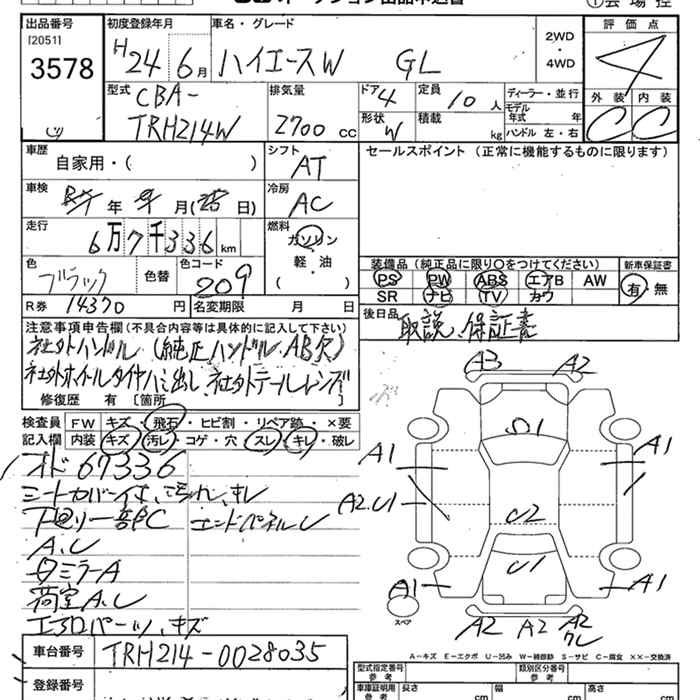 出品番号 初度登録年月 車名・グレード 評価点
[2051]
3578
H24年6月 ハイエースW GL 2WD・4WD 4
型式 CBA-TRH214W
排気量 2700 cc
ドア 4 定員 10 人 ディーラー・並行
形状 W 積載 kg モデル年式 年
ハンドル 左・右
外装 内装
C C
車歴 自家用・( )
シフト AT
セールスポイント (正常に機能するものに限ります)
車検 年 月( 日)
冷房 AC
走行 6万7千336km
燃料 ガソリン
軽・油
( )
色 ブラック 色替 色コード 209
装備品 (純正品に限り○をつけてください) 新車保証書
PS PW ABS エアB AW 有・無
SR ナビ TV カワ
R券 14370 円 名変期限 月 日
後日品 取説、保証書
注意事項申告欄(不具合内容等は具体的に記入して下さい)
社外ハンドル (純正ハンドル、AB欠)
社外ホイールタイヤハミ出し、社外テールレンズ
修復歴 有 [箇所
検査員 FW キズ・飛石・ヒビ割・リペア跡・×要
記入欄 内装 キズ・汚レ・コゲ・穴・スレ・キレ・破レ
メド 67336
シートカバー付、汚れ、キレ
下回り一部C エンドパネルU
A.U
左ミラーA
荷室A.U
エアロパーツ、キズ
A3 A2
A1 A1
A2.U1
U2
U1
A1 A1
スペア
A2 A2 A2
A-キズ E-エクボ U-凹み W-補修跡 S-サビ C-腐食 ××-交換済
車台番号 TRH214-0028035
登録番号
型式指定番号 参考 類別区分番号 参考
車庫証明用 参考 長さ cm 幅 cm 高さ cm